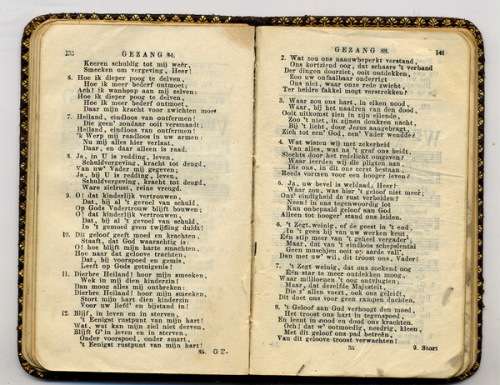 GEZANG 84.
Keeren schuldig tot mij weêr,
Smeeken om vergeving, Heer!
6. Hoe ik dieper poog te delven,
Hoe ik meer bederf ontmoet;
Ach! ik wanhoop aan mij zelven;
Hoe ik dieper poog te delven,
Hoe ik meer bederf ontmoet;
Daar mijn kracht voor zwichten moet
7. Heiland, eindloos van ontfermen!
Die geen' zondaar ooit versmaadt;
'k Werp mij reddloos in uw armen:
Heiland, eindloos van ontfermen!
Nu mij alles hier verlaat,
Daar, en daar alleen is raad.
8. Ja, in U is redding, leven,
Schuldvergeving, kracht tot deugd,
Van uw Vader mij gegeven;
Ja, bij U is redding, leven,
Schuldvergeving, kracht tot deugd,
Ware zielrust, reine vreugd.
9. O! dat kinderlijk vertrouwen,
Dat, bij al 't gevoel van schuld,
Op Gods Vadertrouw blijft bouwen;
O! dat kinderlijk vertrouwen,
Dat, bij al 't gevoel van schuld,
In 't gemoed geen twijfling duldt!
10. Dit geloof geeft moed en krachten;
Staaft, dat God waarachtig is:
O! hoe blijft mijn harte smachten
Naar dat geloove trachten,
Dat, bij voorspoed en gemis,
Leeft op Gods getuigenis!
11. Dierbre Heiland! hoor mijn smeeken,
Wek in mij dien kinderzin!
Dan moge alles mij ontbreken:
Dierbre Heiland! hoor mijn smeeken,
Stort mijn hart dien kinderzin
Voor uw liefd' en bijstand in.
12. Blijf, in leven en in sterven,
't Eenigst rustpunt van mijn hart!
Wat, wat kan mijn ziel niet derven,
Blijft G' in leven en in sterven,
Onder voorspoed, onder smart,
't Eenigst rustpunt van mijn hart!
GEZANG
141
2. Wat zou ons nauwbeperkt verstand,
Ons kortziend oor, dat schaars 't verband
Der dingen doorziet, ooit ontdekken,
Zoo uw onfaalbaar onderrigt
Ons niet, waar onze rede zwicht,
Ter heldre fakkel mogt verstrekken?
3. Waar zou ons hart, in eiken nood,
Waar, bij het naadren van den dood,
Ooit uitkomst zien in zijn ellende,
Zoo 't niet, in zijnen donkren nacht,
Bij 't licht, door Jezus aangebragt,
Zich tot een' God, een' Vader wendde?
4. Wat wisten wij met zekerheid
Van alles, wat na 't graf ons beidt,
Slechts door het redelicht omgeven?
Waar leerden wij die pligten aan,
Die ons, in dit ons eerst bestaan,
Reeds vormen voor een hooger leven?
5. Ja, uw bevel is weldaad, Heer!
Waar zou, was hier 't geloof niet meer,
Ons' eindigheid de rust verbeiden?
Neen! in ons tegenwoordig lot
Kan onbepaald geloof aan God
Alleen tot hooger' stand ons leiden.
6. 't Zegt weinig, of de geest in 't end
In 't geen hij van uw werken kent
Eén stip meer van 't geheel vergader';
Maar, dat van 't eindloos schepselental
Geen muschjen ooit op aarde vall',
Dan met uw' wil, dit troost ons, Vader!
7. 't Zegt weinig, dat ons zoekend oog
Eén star te meer ontdekken moog,
Waar millioenen 't nog ontvlugten,
Maar, dat derzelfde Majesteit,
Die z' allen voert, ook ons geleidt,
Dit doet ons voor geen rampen duchten.
8. 't Geloof aan God verhoogt den moed,
Het troost ons hart in tegenspoed,
En leent in nood en dood ons krachten.
Och! dat w' ootmoedig, needrig, kleen,
Met dit geloof ons pad betreên,
Van dit geloove troost verwachten!